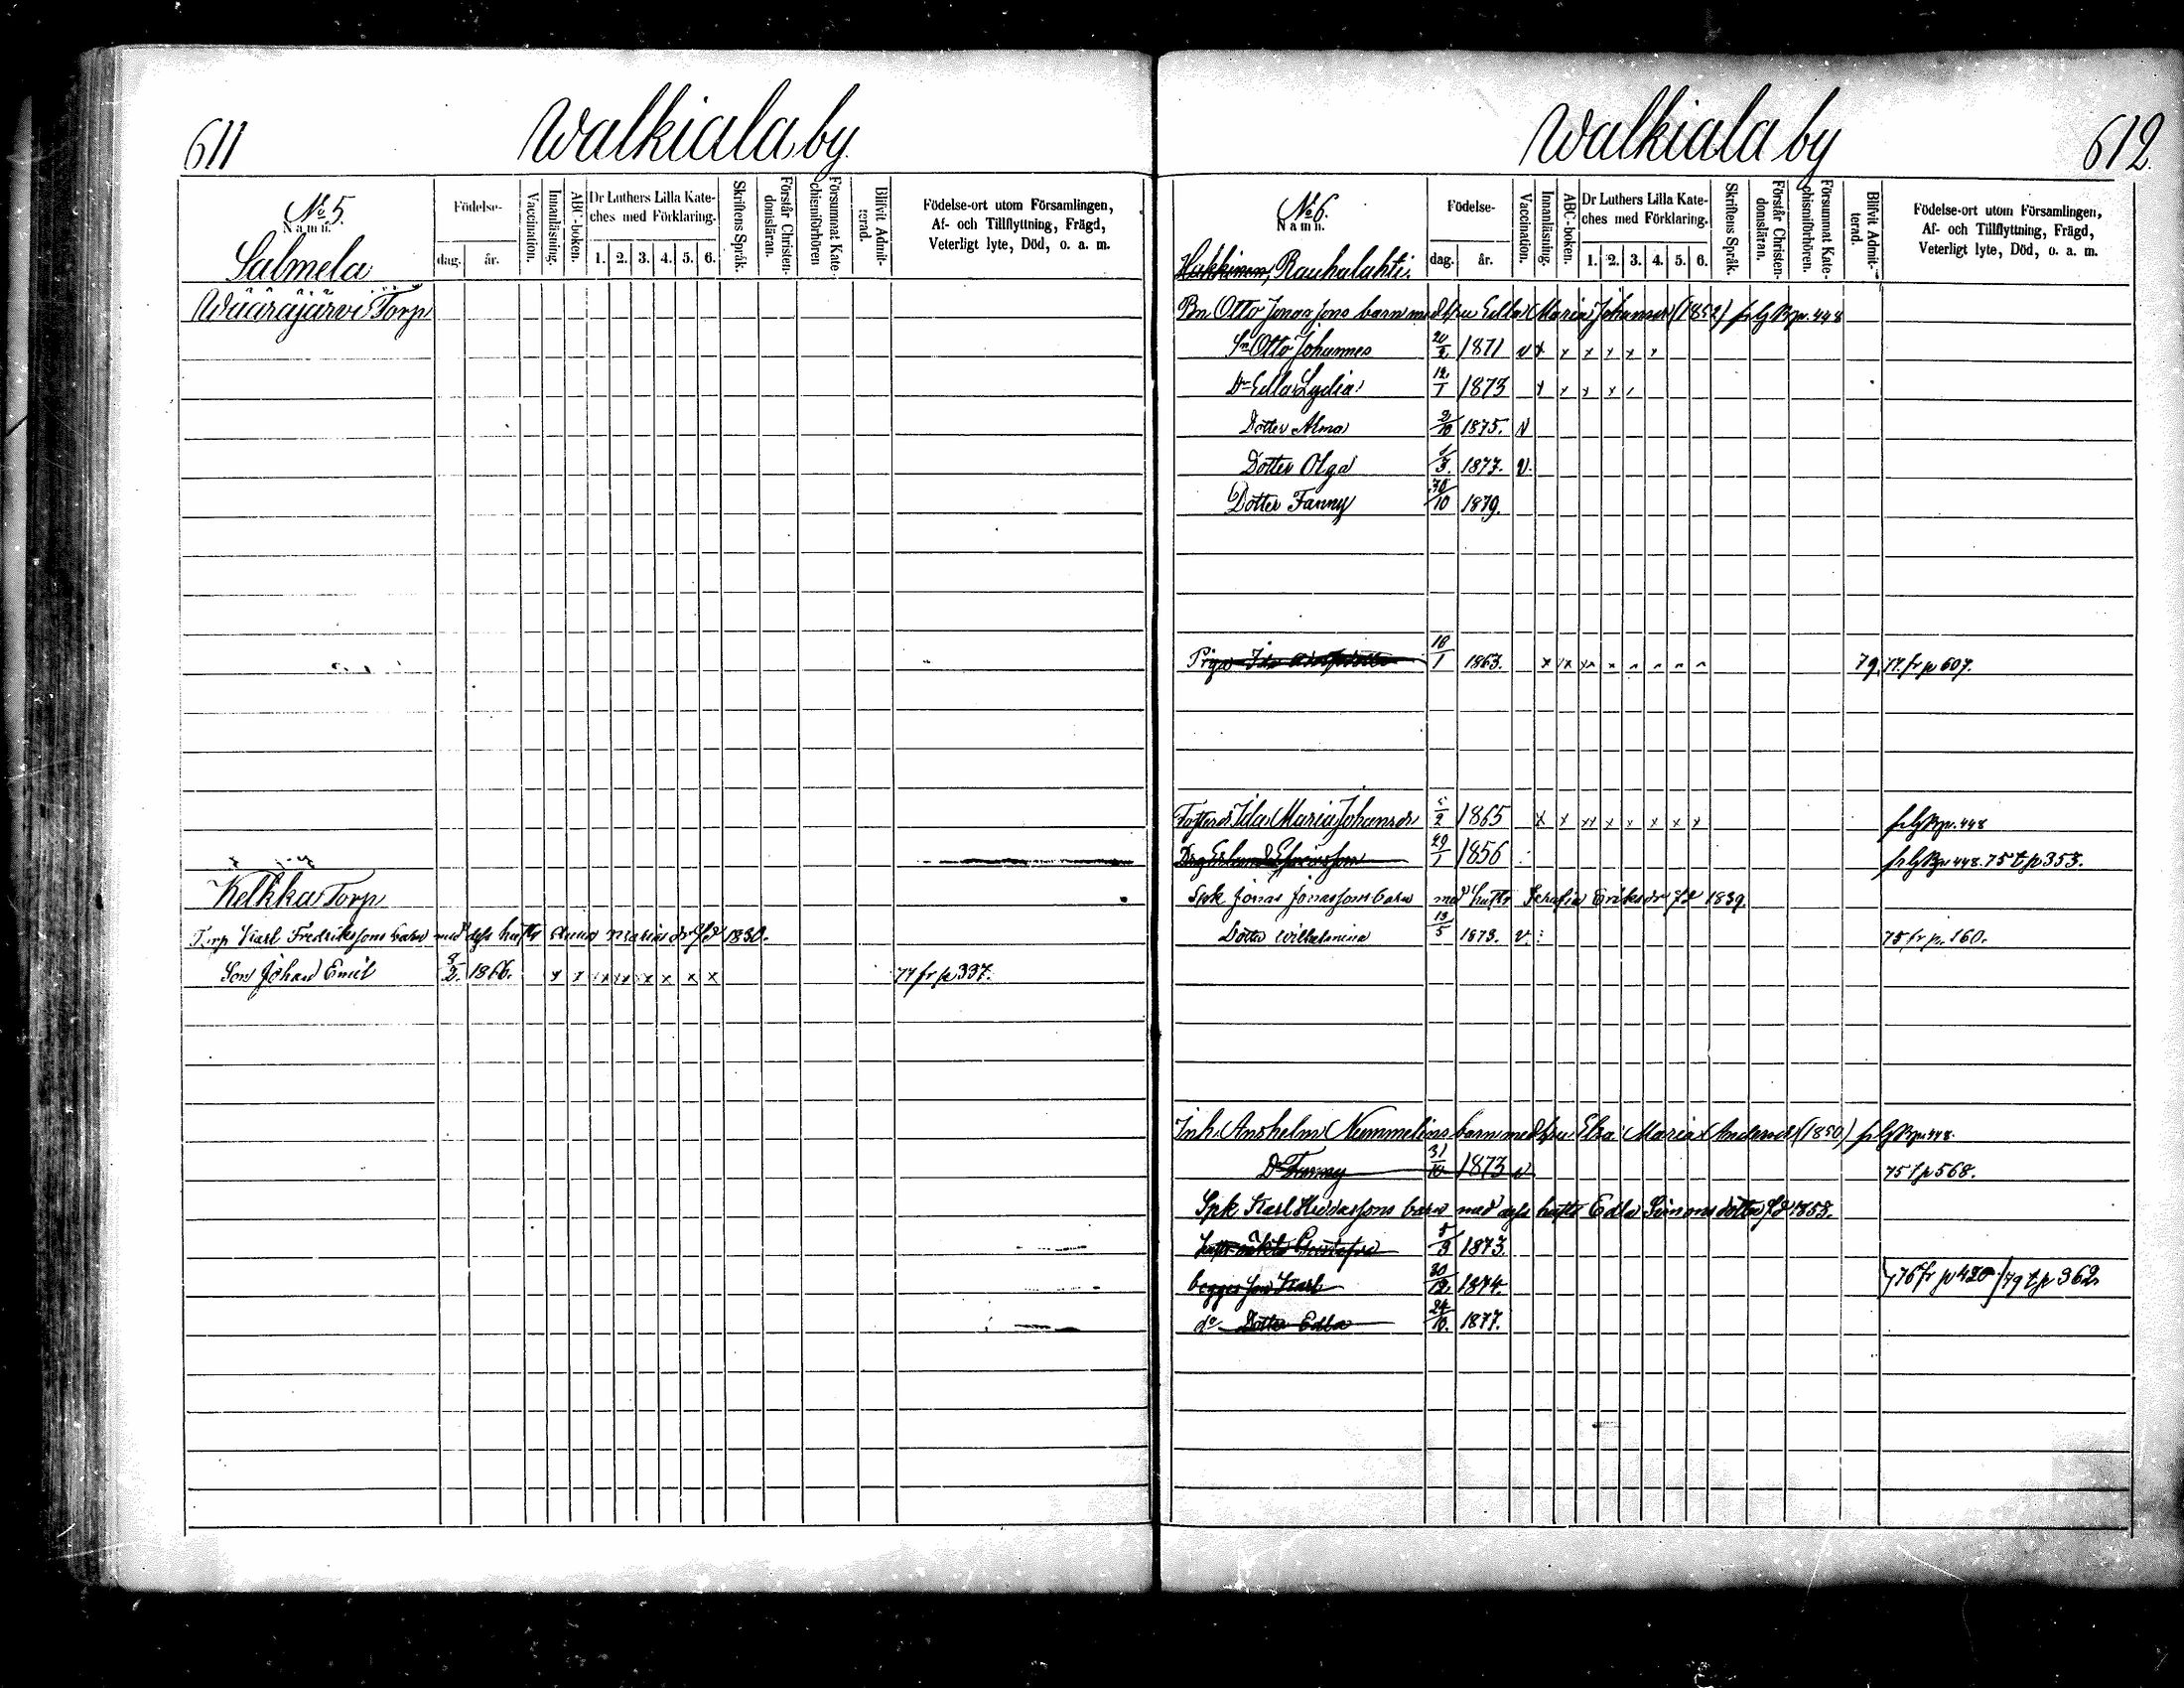 611
Walkiala by
No 5.
Namn.
Salmela
Födelse-
dag.
år.
Vaccination.
Innanläsning.
ABC-boken.
Dr Luthers Lilla Kate-
ches med Förklaring.
1. 2. 3. 4. 5. 6.
Skriftens Språk.
Förstår Christen-
domsläran.
Försummat Kate-
chismiförhören
Blifvit Admit-
terad.
Födelse-ort utom Församlingen,
Af- och Tillflyttning, Frägd,
Veterligt lyte, Död, o. a. m.
Wääräjärvi Torp
Kelkka Torp
Torp Karl Fredrikssons barn med dess hustr Anna Mariasdr fdd 1830.
Son Johan Emil 8/2. 1866. x x x xx x x x x 77 fr p 337.
Walkiala by
612
No 6.
Namn.
Hakkinen, Rauhalahti.
Födelse-
dag.
år.
Vaccination.
Innanläsning.
ABC-boken.
Dr Luthers Lilla Kate-
ches med Förklaring.
1. 2. 3. 4. 5. 6.
Skriftens Språk.
Förstår Christen-
domsläran.
Försummat Kate-
chismiförhören.
Blifvit Admit-
terad.
Födelse-ort utom Församlingen,
Af- och Tillflyttning, Frägd,
Veterligt lyte, Död, o. a. m.
Bn Otto Jonas sons barn med hu Edla Maria Johansdr (1852) fr lg Bp. 448
Sn Otto Johannes 20/2 1871 v x x x x x x
Dr Edla Lydia 12/1 1873 x x x x
Dotter Alma 2/10 1875. v
Dotter Olga 1/3. 1877. v.
Dotter Fanny 30/10 1879.
Piga Ida 18/1 1863. x x xx x 79. 77. fr p 607.
Fosterdr. Ida Maria Johansdr 5/2 1865 x x xx x x x x x fr lg Bp. 448
Drg Erland 29/1 1856 fr lg Bp 448. 75 t p 353.
Spk Jonas Jonassons barn med hustr Serafia Eriksdr fd 1839.
Dotter Wilhelmina 13/5 1873. v. 75 fr p. 160.
Inh. Anshelm Nummelins barn med hu Elsa Maria Andersdr (1850) fr lg Bp. 448.
Dr Fanny 31/10 1873 v 75 t p 568.
Spk Karl barns med dess hustr Edla Simonsdotter fd 1853.
5/3 1873.
begges son Karl 30/12. 1874. 76 fr p 420 / 79 t p 362
do Dotter Edla 24/10. 1877.